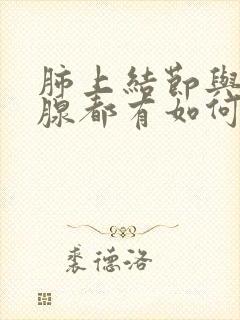 肺上結節與
腺都有如何
裘德洛